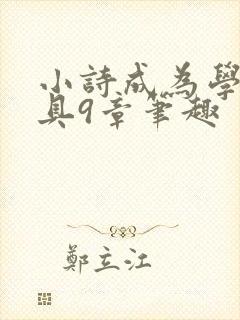 小詩成為學
具9章筆趣
鄭立江